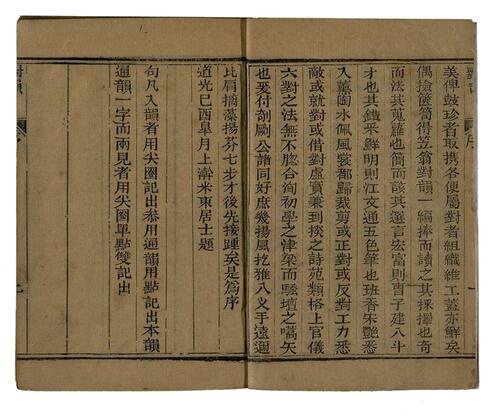 美俾鼓珍者取携各便屬對者組織維工蓋亦鮮矣
偶撿篋笥得笠翁對韻一編捧而讀之其採擇也奇
而法其蒐羅也簡而該其選言宏富則曹子建八斗
才也其鐵采鮮明則江文通五色筆也班香宋艷悉
入薰陶水佩風裳都歸裁剪或正對或反對工力悉
敵或就對或借對虛實兼到揆之詩苑類格上官儀
六對之法無不脗合洵初學之津梁而騷壇之嚆矢
也爰付剞劂公諸同好庶幾揚風扢雅八义手遠邇
比肩摘藻揚芬七步才後先接踵矣是爲序
道光己酉皋月上澣米東居士題
句凡入韻者用尖圈記出叅用通韻用點記出本韻
通韻一字而兩見者用尖圈單點雙記出
對韻